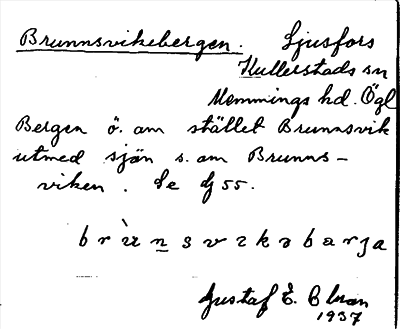 Brunnsvikebergen. Ljusfors
Kullerstads sn
Memmings hd. Ögl
Bergen ö. om stället Brunnsvik
utmed sjön s. om Brunns-
viken. Se dj 55.
b r ù n s v ɩ k ə b a r j a
Gustaf E.
1937